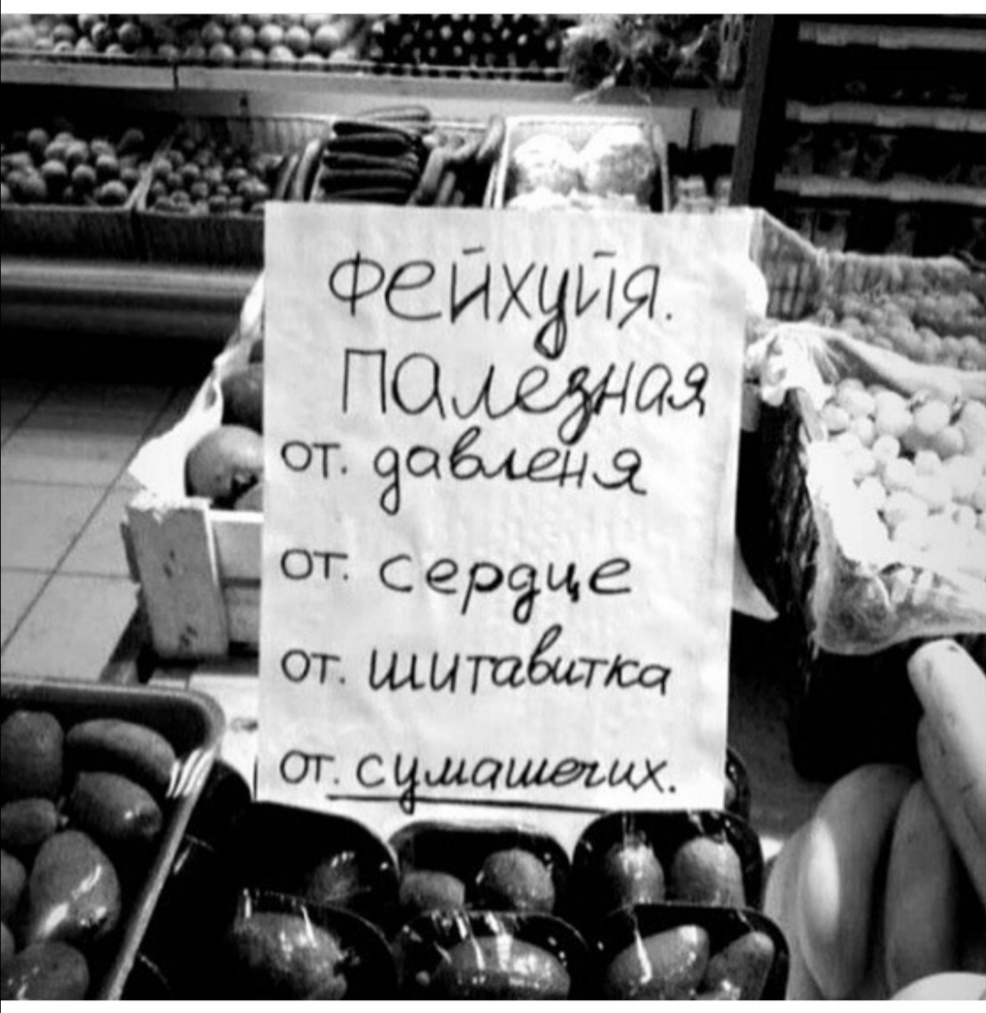 Фейхуйя.
Палезная
от. давленя
от. сердце
от. шитавитка
от. сумашечих.